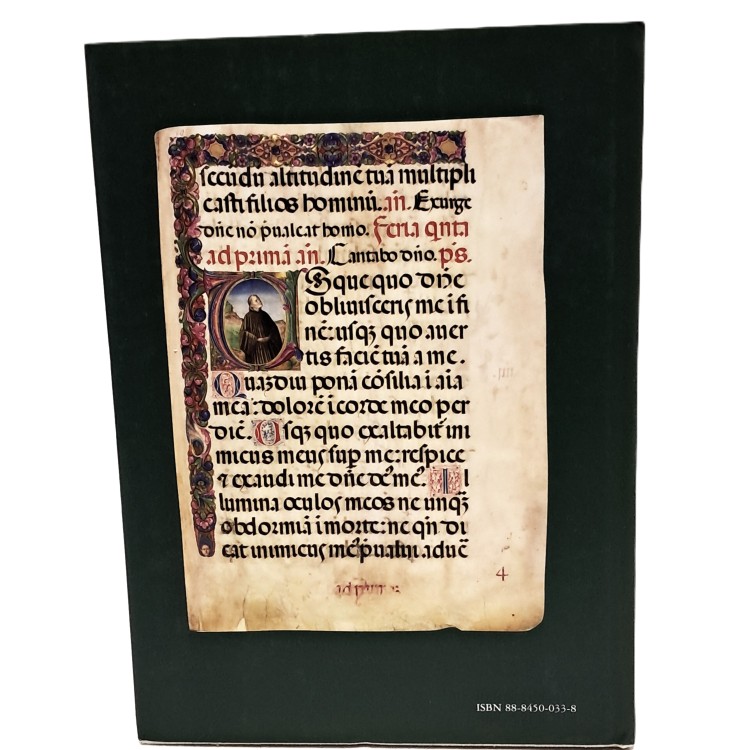 secūdū altitudinē tuā multipli
casti filios hominū. añ. Exurge
dñe nō p̄ualeat homo. Feria qnta
ad primā añ. Cantabo dño. ps.
Usque quo dñe
obliuisceris me i fi
nē: usqꝫ quo auer
tis faciē tuā a me.
Quazdiu ponā cōsilia i aīa
mea: dolorē i corde meo per
diē. Usqꝫ quo exaltabit̄ ini
micus meus sup me: respice
⁊ exaudi me dñe de' me'. Il
lumina oculos meos ne unqꝫ
obdormiā i morte: ne qn̄ di
cat inimicus me' p̄ualui aduē
4
ISBN 88-8450-033-8